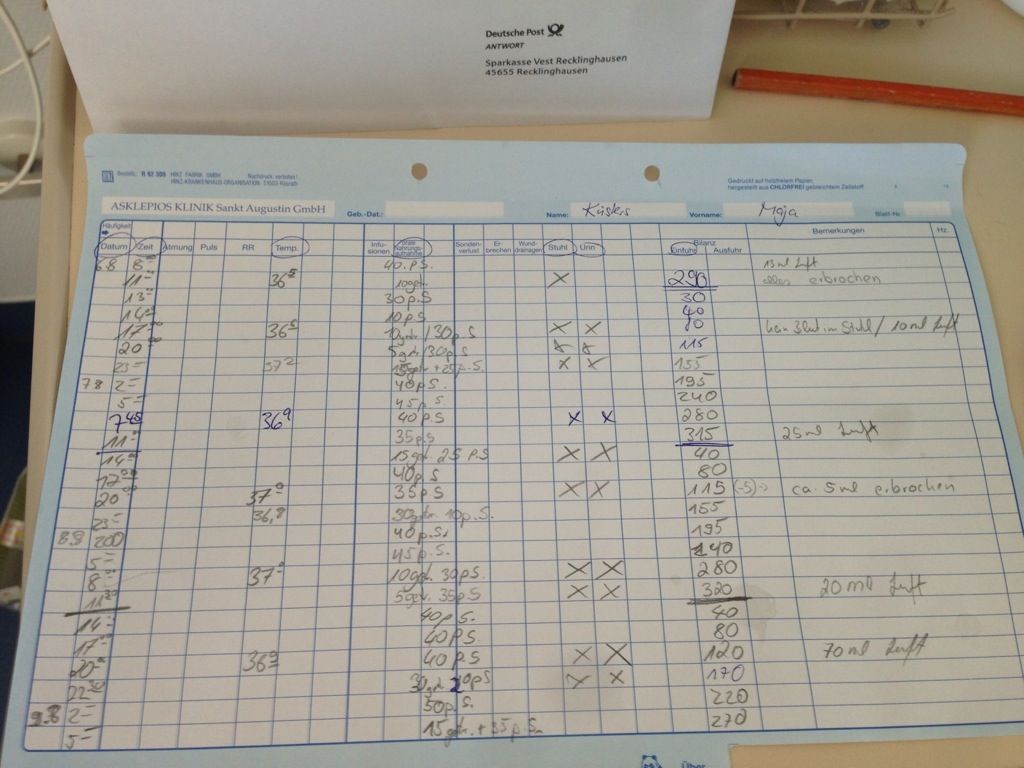 Deutsche Post
ANTWORT
Sparkasse Vest Recklinghausen
45655 Recklinghausen
Bestell-Nr. R 92 309 HINZ FABRIK GMBH Nachdruck verboten!
HINZ-KRANKENHAUS-ORGANISATION
Gedruckt auf holzfreiem Papier,
hergestellt aus CHLORFREI gebleichtem Zellstoff
ASKLEPIOS KLINIK Sankt Augustin GmbH Geb.-Dat.: Name: Küskes Vorname: Maja Blatt-Nr.
Häufigkeit Bilanz Bemerkungen Hz.
Datum Zeit Atmung Puls RR Temp. Infusionen orale Nahrungsaufnahme Sondenverlust Erbrechen Wunddrainagen Stuhl Urin Einfuhr Ausfuhr
6.8 8 40 p.S. 13 ml Luft
11 36 8 10 getr. X 290 alles erbrochen
13 30 p.S 30
14 10 p.S 40
17 36 5 10 getr / 30 p.S X X 80 kein Blut im Stuhl / 10 ml Luft
20 5 getr / 30 p.S X X 115
23 37 2 15 getr + 25 p.S. X X 155
7.8 2 40 p.S. 195
5 45 p.S. 240
7 45 36 9 40 p.S X X 280
11 35 p.S 315 25 ml Luft
14 15 getr 25 p.S X X 40
17 40 p.S 80
20 37 0 35 p.S X X 115 (-5) ca. 5 ml erbrochen
23 36,8 30 getr. 10 p.S. 155
8.8 200 40 p.S. 195
5 45 p.S. 240
8 37 10 getr. 30 p.S. X X 280
11 30 5 getr. 35 p.S X X 320 20 ml Luft
14 40 p.S. 40
17 40 p.S. 80
20 36 9 40 p.S X X 120 70 ml Luft
22 30 30 getr 20 p.S X X 170
9.8 2 50 p.S. 220
5 15 getr. + 35 p.S. 270
Über